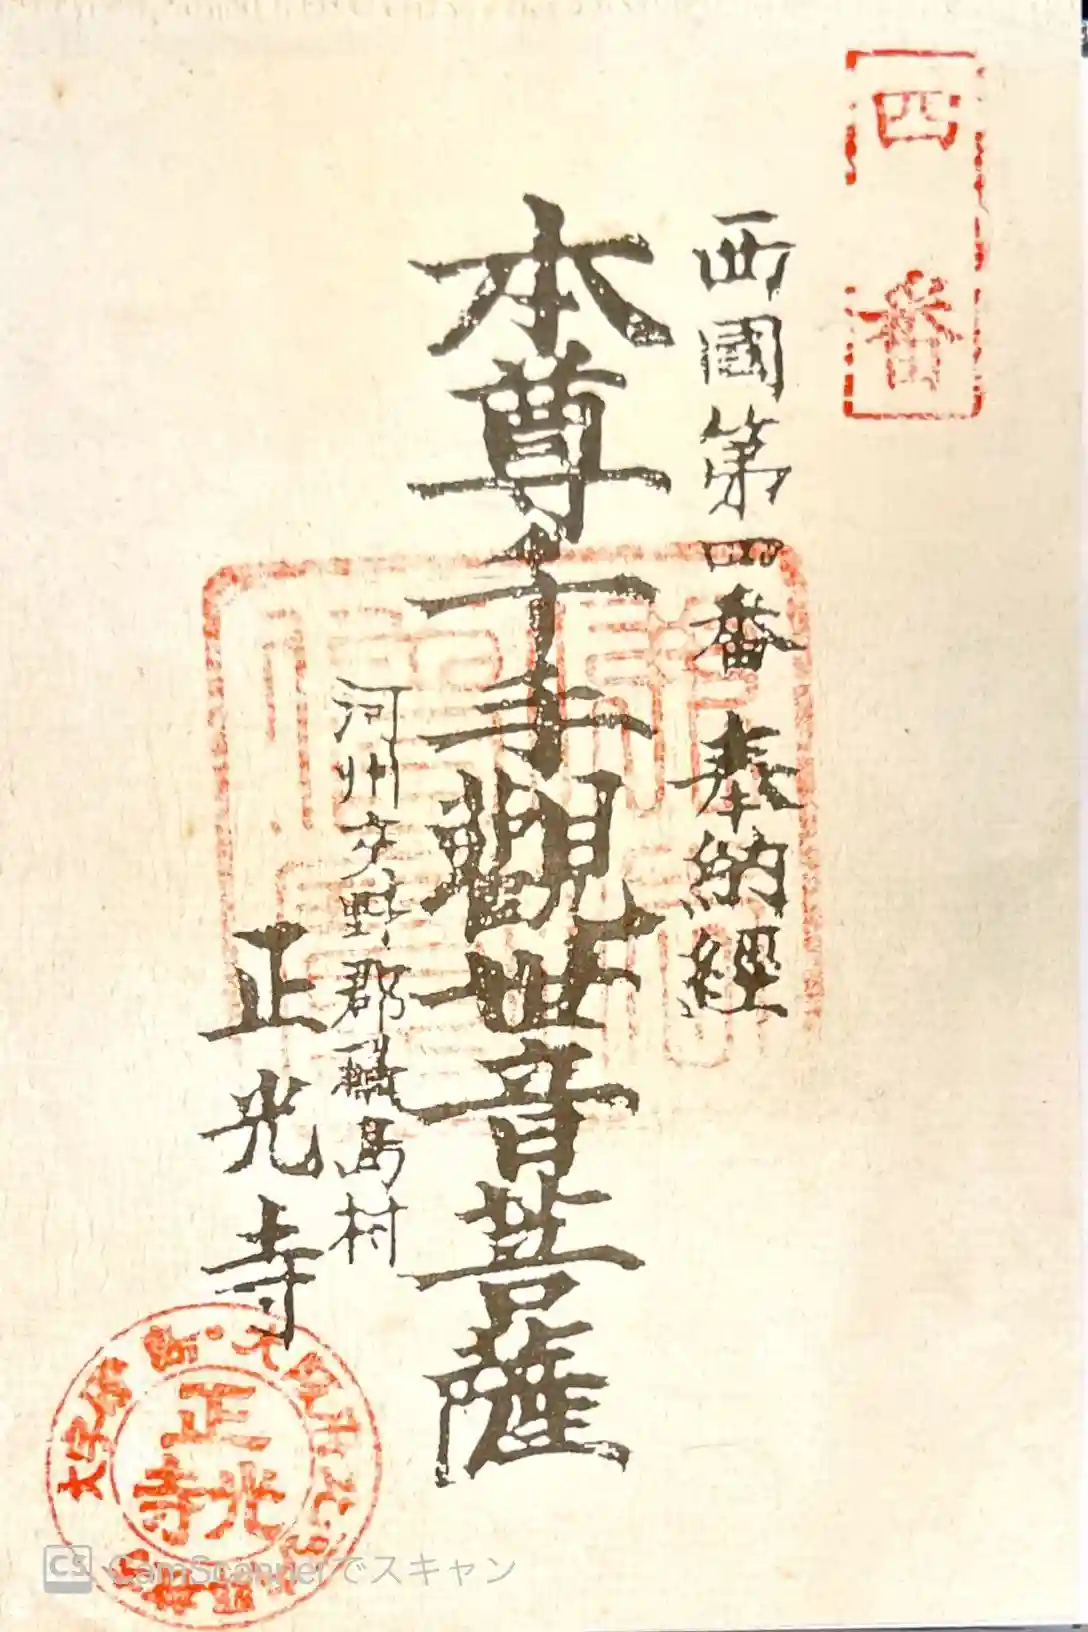 四番
西國第四番 奉納經
本尊千手觀世音菩薩
河州交野郡
島村
正光寺
正光寺
CS CamScannerでスキャン